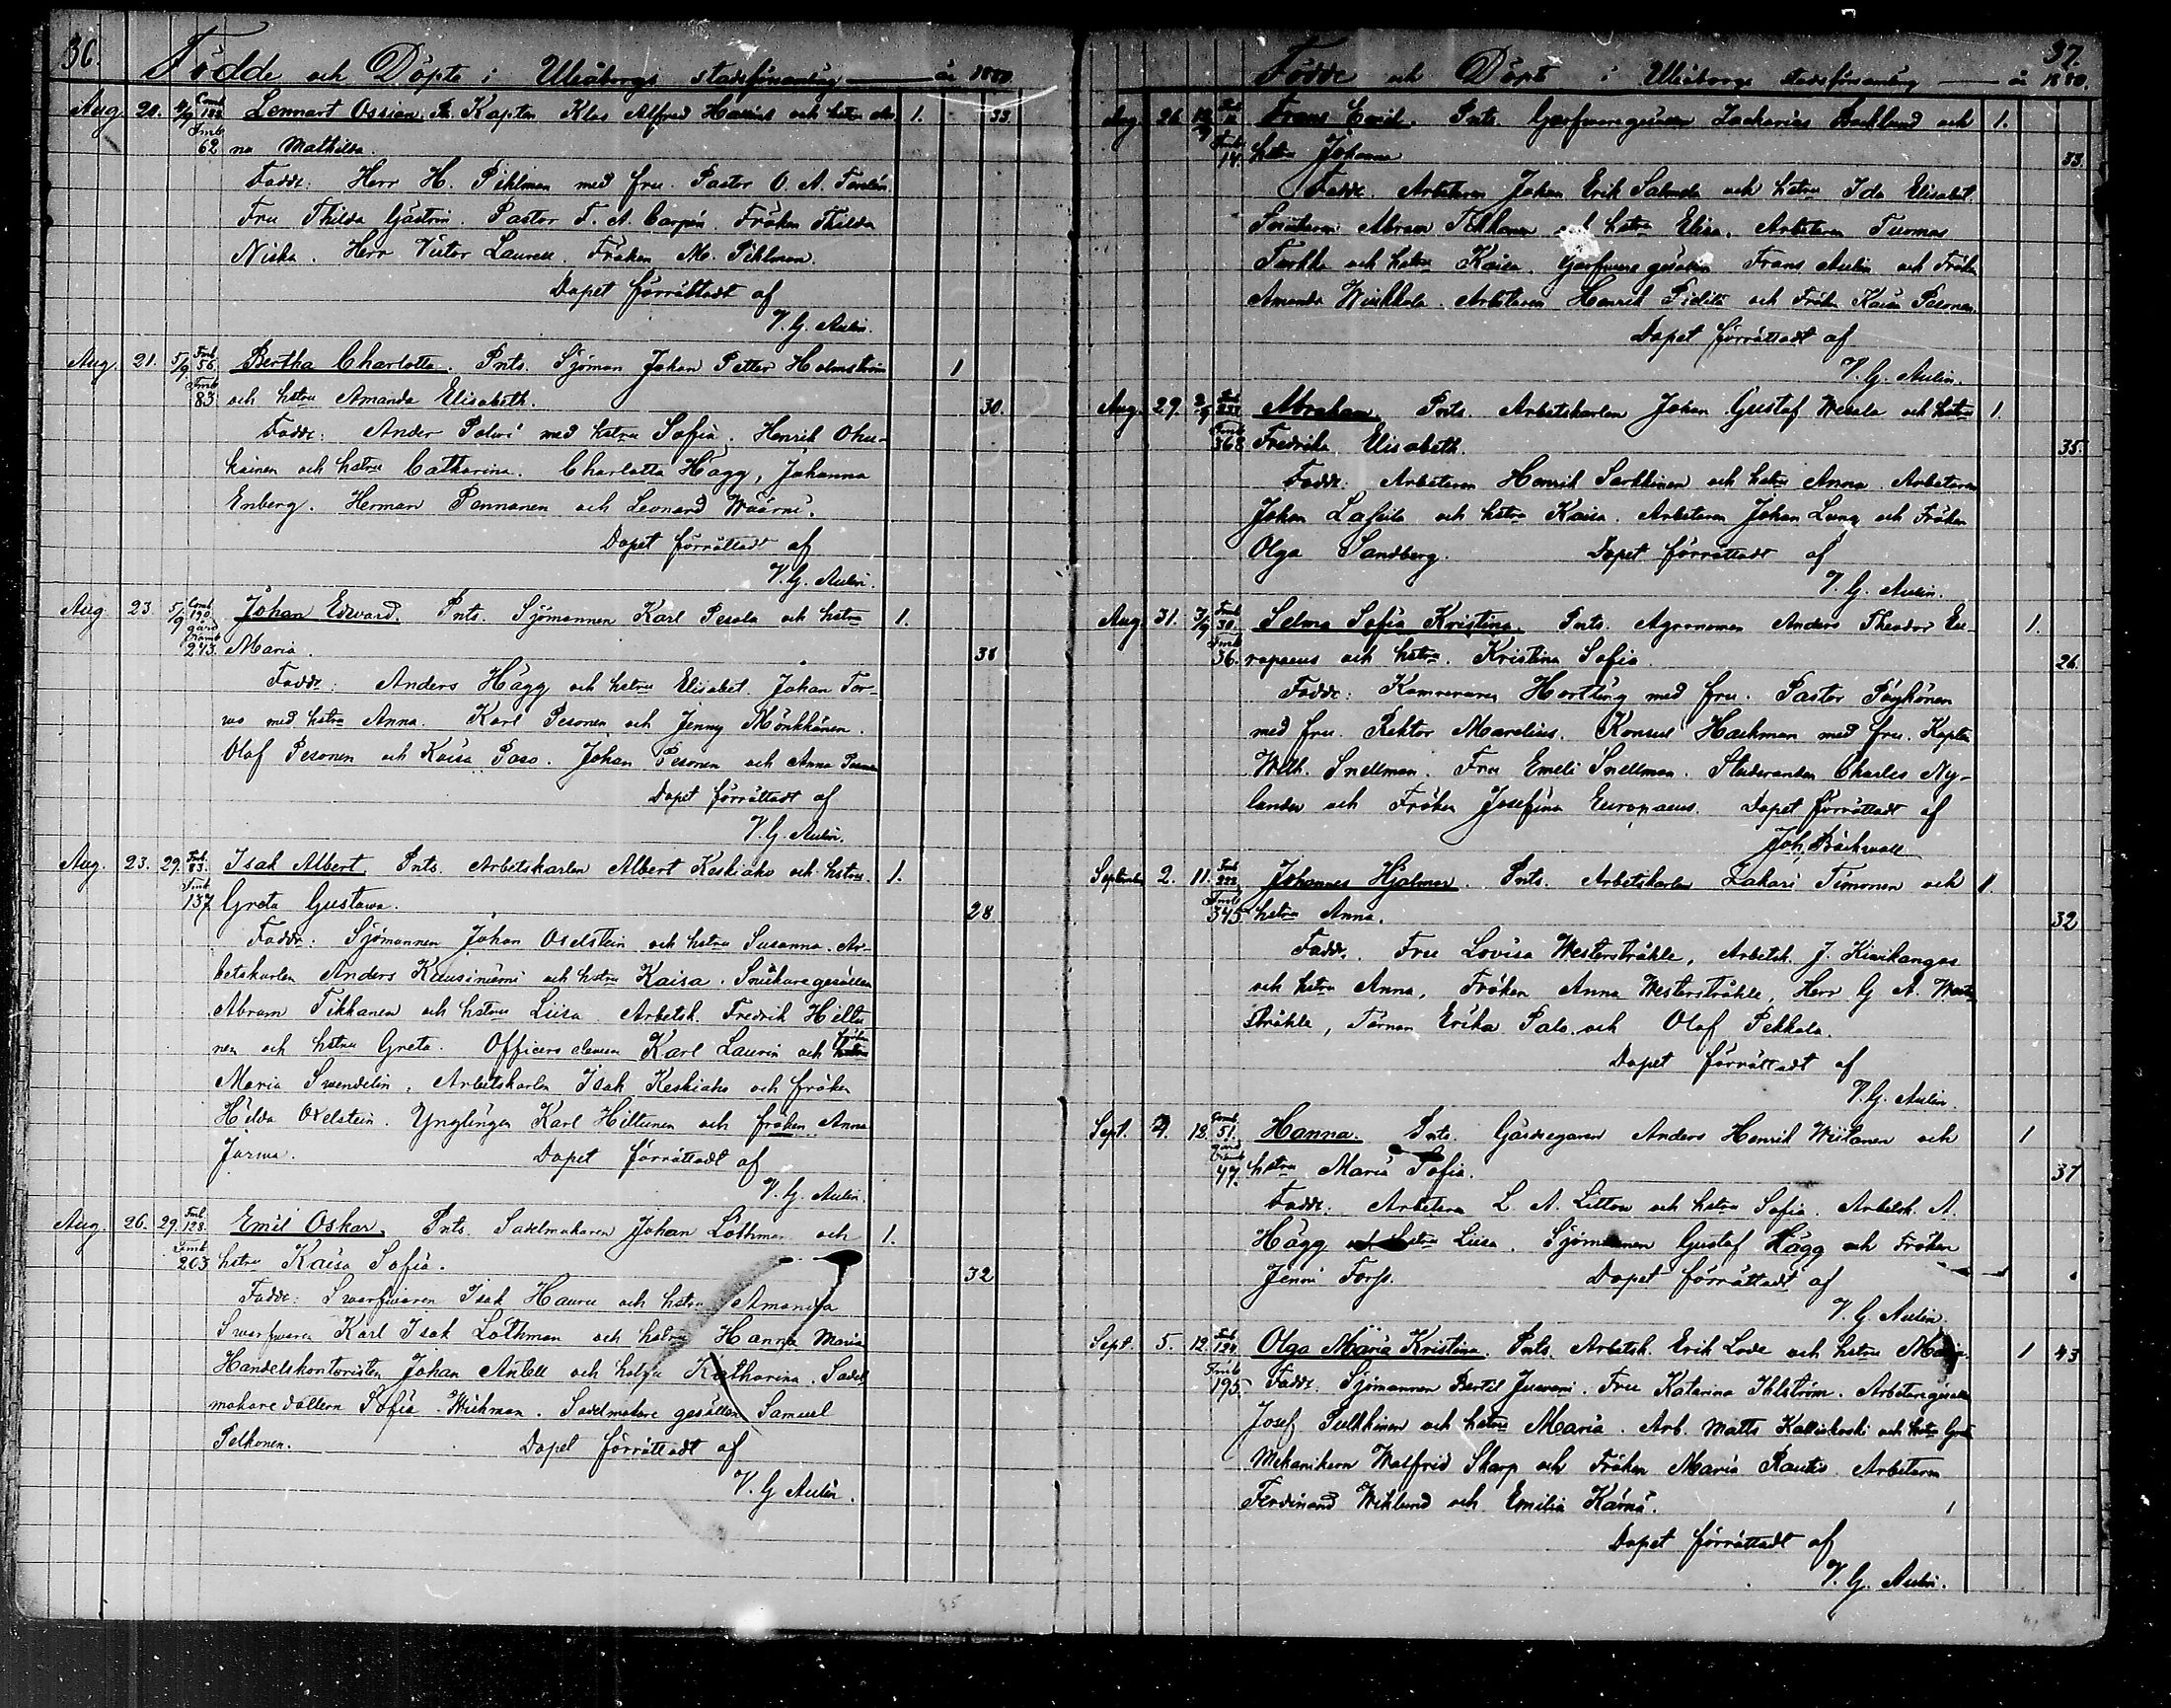 36.
Födde och Döpte i Uleåborgs stadsförsamling år 1880.
Aug. 20. 4/9 Comb 188 Lennart Ossian. Kapten Klas Alfred och hstru 1. 33.
Fmb 62 na Mathilda.
Faddr: Herr H. Pihlman med fru. Pastor O. A.
Fru Thilda Gästrin. Pastor F. A. Fröken Thilda
Niska. Herr Victor Laurell. Fröken M. Pihlman.
Dopet förrättadt af
V. G. Aulin.
Aug. 21. 5/9 Fmb 56 Bertha Charlotta. Prts. Sjöman Johan Petter Holmström 1
Fmb 83 och hstru Amanda Elisabeth. 30.
Faddr: Ander Polvi med hstru Sofia. Henrik Ohu-
kainen och hstru Catharina. Charlotta Hägg, Johanna
Enberg. Herman Pennanen och Leonard Wäärni.
Dopet förrättadt af
V. G. Aulin.
Aug. 23. 5/9 Comb 190 Johan Edward. Prts. Sjömannen Karl Pesola och hstru 1.
gård 243. Maria. 38
Faddr: Anders Hägg och hstru Elisabet. Johan Tor-
vo med hstru Anna. Karl Pesonen och Jenny Mönkkönen.
Olaf Pesonen och Kaisa Paso. Johan Pesonen och Anna
Dopet förrättadt af
V. G. Aulin.
Aug. 23. 29. Fmb 83. Isak Albert. Prts. Arbetskarlen Albert Keskiaho och hstru 1.
Fmb 137 Greta Gustava. 28
Faddr: Sjömannen Johan Oxelstein och hstru Susanna. Ar-
betskarlen Anders Kuusiniemi och hstru Kaisa. Snickaregesällen
Abram Tikkanen och hstru Liisa. Arbetsk. Fredrik Hiltu
nen och hstru Greta. Officers eleven Karl Laurin och fröken
Maria Swendelin. Arbetskarlen Isak Keskiaho och fröken
Hilda Oxelstein. Ynglingen Karl Hiltunen och fröken Anna
Jurva. Dopet förrättadt af
V. G. Aulin.
Aug. 26. 29. Fmb 128. Emil Oskar. Prts. Sadelmakaren Johan Löthman och 1.
Fmb 203 hstru Kaisa Sofia. 32
Faddr: Swarfwaren Isak Hauru och hstru Amanda
Swarfware Karl Isak Löthman och hstru Hanna Maria
Handelskontoristen Johan Antell och hstru Katharina. Sadel
makare dottern Sofia Wickman. Sadelmakare gesällen Samuel
Pelkonen. Dopet förrättadt af
V. G. Aulin.
37.
Födde och Döpte i Uleåborgs stadsförsamling år 1880.
Aug. 26. Frans Emil. Prts. Garfvaregesällen Zacharias Backlund och 1.
Fmb 14. hstru Johanna 33.
Faddr. Arbetaren Johan Erik Salmela och hstru Ida Elisabet.
Snickaren Abram Tikkanen och hstru Elisa. Arbetaren Tuomas
Turkka och hstru Kaisa. Garfvare gesällen Frans Aulin och Fröken
Amanda Wirkkala. Arbetaren Henrik Pietilä och Fröken Kaisa Pesonen.
Dopet förrättadt af
V. G. Aulin.
Aug. 29. Fmb 233 Abraham. Prts. Arbetskarlen Johan Gustaf Wesala och hstru 1.
Fmb 368 Fredrika Elisabeth. 35.
Faddr: Arbetaren Henrik Sarkkinen och hstru Anna. Arbetaren
Johan och hstru Kaisa. Arbetaren Johan Lung och Fröken
Olga Sandberg. Dopet förrättadt af
V. G. Aulin.
Aug. 31. 7/9 Fmb 30. Selma Sofia Kristina. Prts. Agronomen Anders Theodor Eu- 1.
Fmb 36. ropaeus och hstru Kristina Sofia. 26.
Faddr: Kamreraren Hortling med fru. Pastor Pöyhönen
med fru. Rektor Marelius. Konsul Hackman med fru. Kapten
Wilh. Snellman. Fru Emeli Snellman. Studeranden Charles Ny-
lander och Fröken Josefina Europaeus. Dopet förrättadt af
Joh. Bäckwall
September 2. 11. Fmb 222 Johannes Hjalmar. Prts. Arbetskarlen Zakari Timonen och 1.
Fmb 345 hstru Anna. 32
Faddr. Fru Lovisa Westerstråhle, Arbetsk. J. Kiwikangas
och hstru Anna, Fröken Anna Westerstråhle, Herr G A. Wester
stråhle, Tärnan Erika Palo och Olof Pekkala.
Dopet förrättadt af
V. G. Aulin.
Sept. 4. 12. Comb 51. Hanna. Prts. Gårdsegaren Anders Henrik Wiilanen och 1
47. hstru Maria Sofia. 37
Faddr. Arbetaren L. A. Littow och hstru Sofia. Arbetsk. A.
Hägg och hstru Liisa. Sjömannen Gustaf Hägg och Fröken
Jenni Forss. Dopet förrättadt af
V. G. Aulin.
Sept. 5. 12. Fmb 124 Olga Maria Kristina. Prts. Arbetsk. Erik Lode och hstru Maria. 1 43
Fmb 195 Faddr. Sjömannen Bertil Juvani. Fru Katarina Ihlström. Arbetaregesällen
Josef Pulkkinen och hstru Maria. Arb. Matts Kalliokoski och hstru Greta
Mekanikern Walfrid Skarp och Fröken Maria Rautio. Arbetaren
Ferdinand Wiklund och Emilia Kärnä.
Dopet förrättadt af
V. G. Aulin.